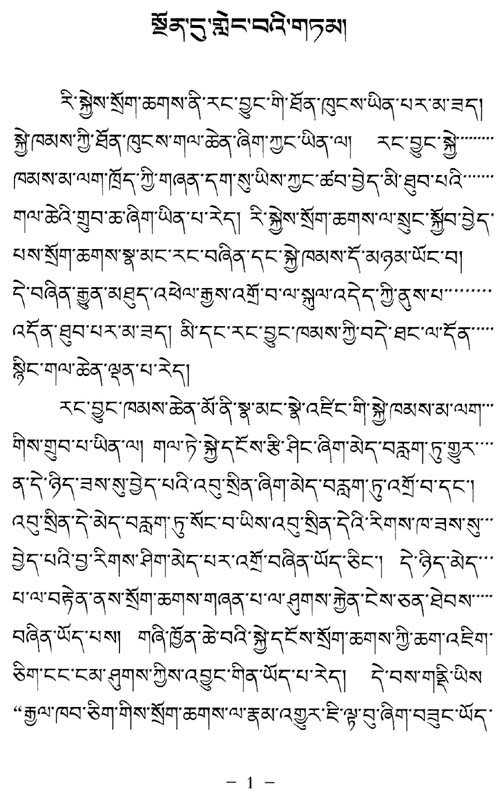 སྔོན་དུ་གླེང་བའི་གཏམ།
རི་སྐྱེས་སྲོག་ཆགས་ནི་རང་བྱུང་གི་ཐོན་ཁུངས་ཡིན་པར་མ་ཟད།
སྐྱེ་ཁམས་ཀྱི་ཐོན་ཁུངས་གལ་ཆེན་ཞིག་ཀྱང་ཡིན་ལ། རང་བྱུང་སྐྱེ་
ཁམས་མ་ལག་ཁྲོད་ཀྱི་གཞན་དག་སུ་ཡིས་ཀྱང་ཚབ་བྱེད་མི་ཐུབ་པའི་
གལ་ཆེའི་གྲུབ་ཆ་ཞིག་ཡིན་པ་རེད། རི་སྐྱེས་སྲོག་ཆགས་ལ་སྲུང་སྐྱོབ་བྱེད་
པས་སྲོག་ཆགས་སྣ་མང་རང་བཞིན་དང་སྐྱེ་ཁམས་དོ་མཉམ་ཡོང་བ།
དེ་བཞིན་རྒྱུན་མཐུད་འཕེལ་རྒྱས་འགྲོ་བ་ལ་སྐུལ་འདེད་ཀྱི་ནུས་པ་
འདོན་ཐུབ་པར་མ་ཟད། མི་དང་རང་བྱུང་ཁམས་ཀྱི་བདེ་ཐང་ལ་དོན་
སྙིང་གལ་ཆེན་ལྡན་པ་རེད།
རང་བྱུང་ཁམས་ཆེན་མོ་ནི་སྣ་མང་སྣེ་འཛིང་གི་སྐྱེ་ཁམས་མ་ལག་
གིས་གྲུབ་པ་ཡིན་ལ། གལ་ཏེ་སྐྱེ་དངོས་རྩི་ཤིང་ཞིག་མེད་བརླག་ཏུ་གྱུར་
ན་དེ་ཉིད་ཟས་སུ་བྱེད་པའི་འབུ་སྲིན་ཞིག་མེད་བརླག་ཏུ་འགྲོ་བ་དང་།
འབུ་སྲིན་དེ་མེད་བརླག་ཏུ་སོང་བ་ཡིས་འབུ་སྲིན་དེའི་རིགས་ཁ་ཟས་སུ་
བྱེད་པའི་བྱ་རིགས་ཤིག་མེད་པར་འགྲོ་བཞིན་ཡོད་ཅིང་། དེ་ཉིད་མེད་
པ་ལ་བརྟེན་ནས་སྲོག་ཆགས་གཞན་པ་ལ་ཤུགས་རྐྱེན་ངེས་ཅན་ཐེབས་
བཞིན་ཡོད་པས། གཞི་ཁྱོན་ཆེ་བའི་སྐྱེ་དངོས་སྲོག་ཆགས་ཀྱི་ཆག་འཇིག་
ཅིག་ངང་ངམ་ཤུགས་ཀྱིས་འབྱུང་གིན་ཡོད་པ་རེད། དེ་བས་གནྡི་ཡིས
“རྒྱལ་ཁབ་ཅིག་གིས་སྲོག་ཆགས་ལ་རྣམ་འགྱུར་ཇི་ལྟ་བུ་ཞིག་བཟུང་ཡོད་
– 1 –